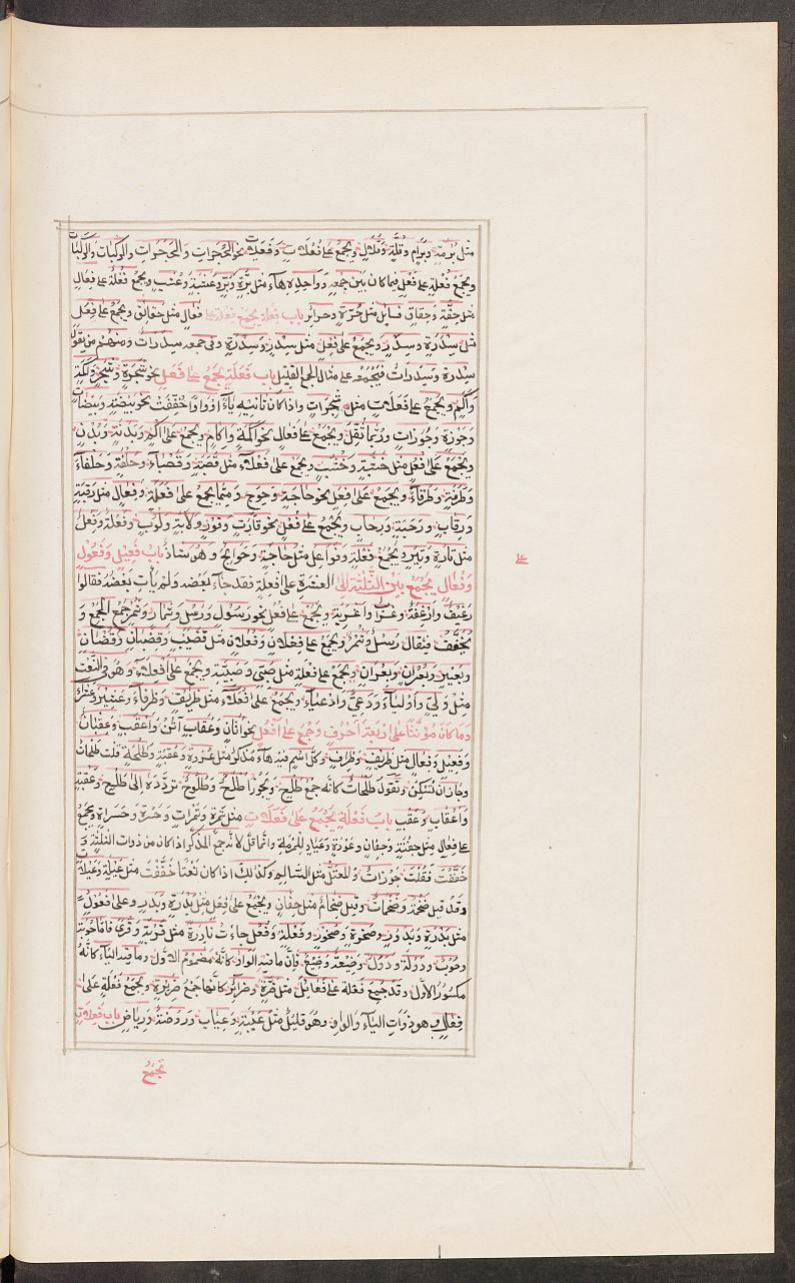 مثل بُرمةٍ وبرام وقلّة وقلال ويجمع على فُعُلات وفُعَلات نحو الحُجُرات والحُجَرات والركبات والركبات
ويجمع فُعلة على فُعَل فيما كان بين جمعه وواحده هاء مثل بُرّة وبُرّ وعُشبة وعُشب ويجمع فعلة على فعال
مثل حقّة وحقاق فعايل مثل حُرّة وحراير باب فعلة يجمع فعلة على فعال مثل حقائق ويجمع على فعل
مثل سِدرة وسدر ويجمع على فعل مثل سِدر وسدرة وفى جمعه سدرات ومنهم من يقول
سِدرة وسِدِرات فيجمعه على مثال الجمع القليل باب فَعَلة يجمع على فَعَل نحو شجرة وشجر واكمة
واكم ويجمع على فَعَلات مثل شجرات واذا كان ثانيه ياءً او واوا خففت نحو بيضة وبيضات
وجوزة وجوزات وربما ثقل ويجمع على فعال نحو اكمة واكام ويجمع على اكم وبدنة وبُدن
ويجمع على فُعل مثل خشبة وخُشب ويجمع على فعلاء مثل قصبة وقصباء وحلفة وحلفاء
وطرفة وطرفاء ويجمع على فعل نحو حاجة وحوج ومما يجمع على فعلة وفعال مثل رقبة
ورقاب ورحبة ورحاب ويجمع على فُعل نحو قارة وقور ولابة ولوب وفعلة وفعل
مثل تارة وتير ويجمع فعلة وفواعل مثل حاجة وحوائج وهو شاذ باب فعيل وفعول
وفعال يجمع بين الثلثة الى العشرة على افعلة فقد جاء بعضه ولم يأت بعضه فقالوا
رغيف وارغفة وغراب واغربة ويجمع على فُعل نحو رسول ورُسل وثمار وثمر جمع الجمع و
يخفف فيقال رسل وثمر ويجمع على فعلان وفُعلان مثل قضيب وقِضبان وقُضبان
وبعير وبعران وبعران ويجمع على فعلة مثل صبىّ وصبية ويجمع على افعلاء وهو فى النعت
مثل ولىّ واولياء ودعىّ وادعياء ويجمع على فعلاء مثل ظريف وظرفاء وعشير وعشراء
وما كان مؤنثا على اربعة احرف وجمع على افعل نحو اتان وعقاب آتُن واعقب وعقبان
وفعيل وفعال مثل ظريف وظراف وكل اسم فيه هاء مذكر مثل عروة وعقبة وطلحة قلت طلحات
وجاز ان تسكن وتقول طلحات كانه جمع طلح ويجوز اطلح وطلوح تردّده الى طلح وعقبة
واعقاب وعقب باب فَعلة يجمع على فعلات مثل تمرة وتمرات وحسرة وحسرات ويجمع
على فعال مثل جفنة وجفان
خففت فقلت جوزات وللمعتل مثل السالم وكذلك اذا كان نعتا خففت مثل عبلة وعبلات
وقد قيل ضخمة وضخمات وقيل ضخام مثل جفان ويجمع على فعل مثل بدرة وبدر وعلى فعول
مثل بدرة وبدور وصخرة وصخور وفعلة وفُعل جاءت نادرة مثل قرية وقرى فاما جوبة
وجوب ودولة ودول وضيعة وضيع فان ما فيه الواو كانه مضموم الاول وما فيه الياء كانه
مكسور الاول وقد جمع فعلة على فعائل مثل ضرّة وضرائر كانها جمع ضريرة ويجمع فعلة على
فعال وهو ذوات الياء والواو وهو قليل مثل عيبة وعياب وروضة ورياض باب فعلة
على
تجمع